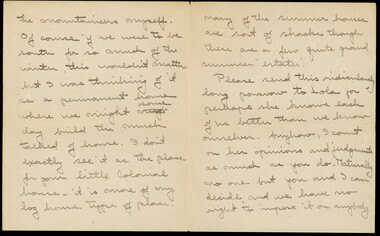 the mountaineers myself.
Of course if we were to be
south for so much of the
winter, this wouldn't matter
but I was thinking of it
as a permanent home
where we might some
day build the much
talked of house. I don't
exactly see it as the place
for your little Colonial
house - it is more of my
log house type of place.
many of the summer houses
are sort of shacks though
there are a few quite grand
summer "estates".
Please send this ridiculously
long powwow to Lola for
perhaps she knows each
of us better than we know
ourselves. Anyhow, I count
on her opinions and judgments
as much as you do. Naturally
no one but you and I can
decide and we have no
right to impose it on anybody